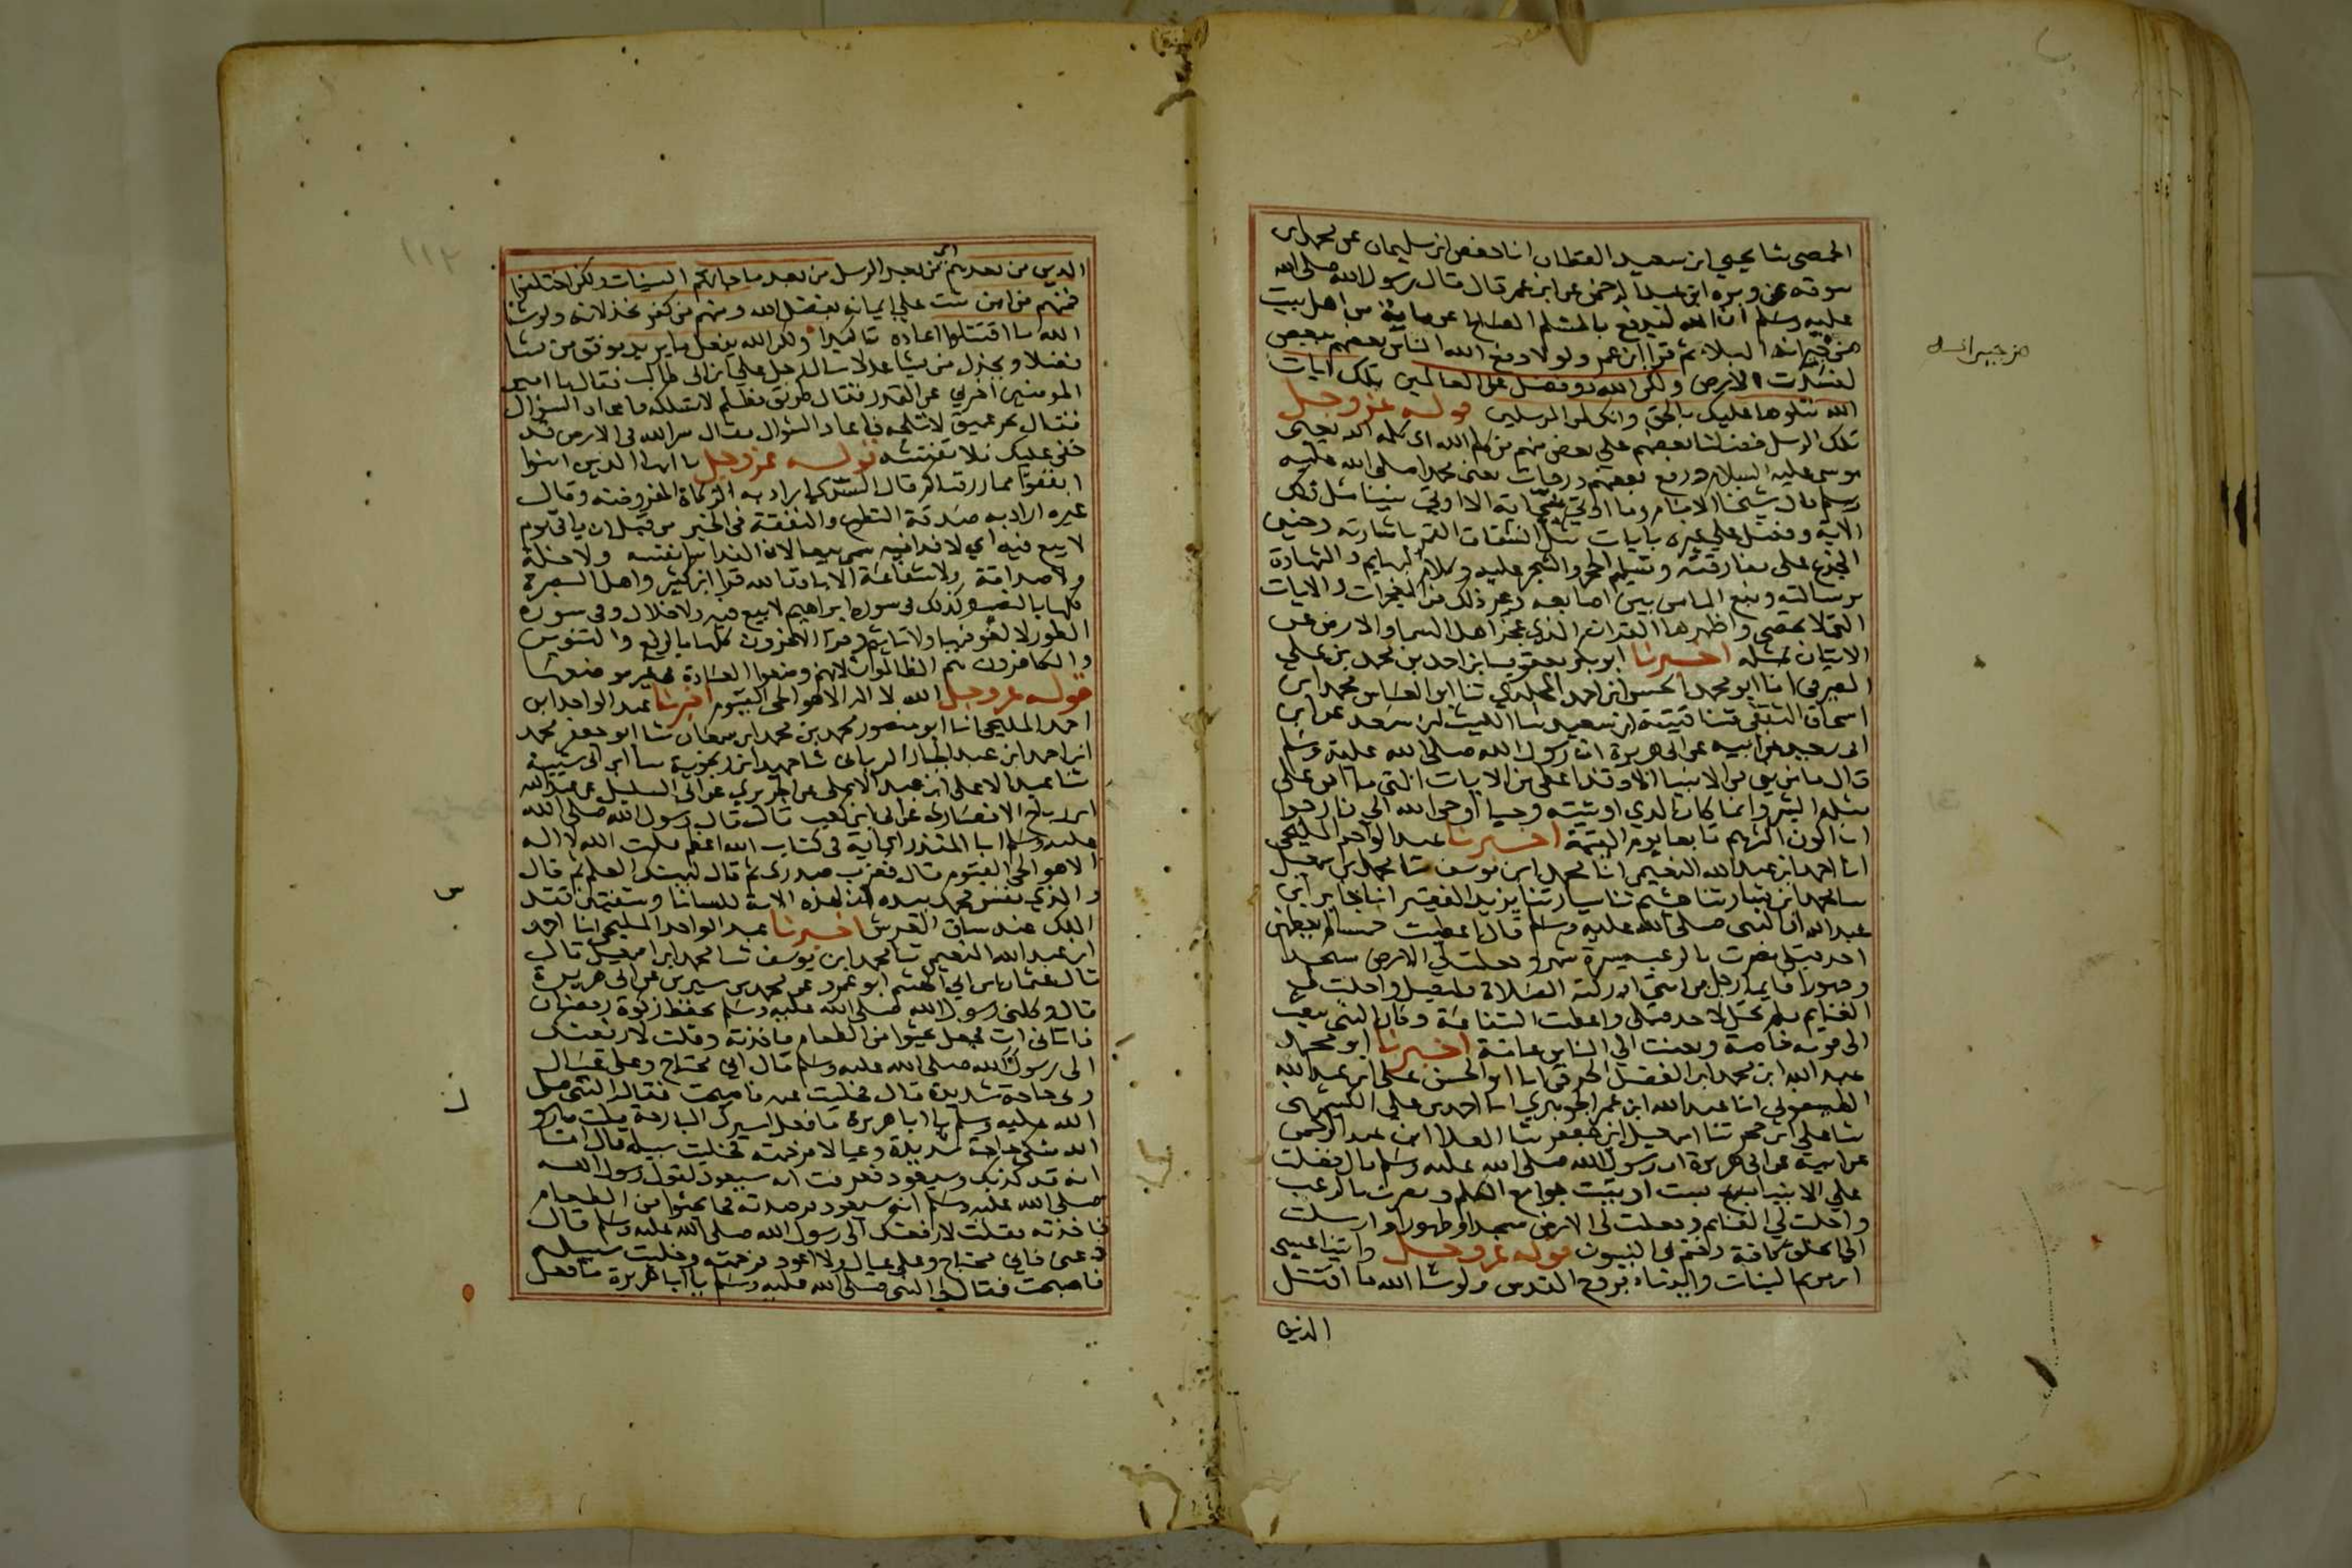 الحمصي ثنا يحيى ابن سعيد العطار انا حفص ابن سليمان عن محمد ابن
سوقه عن وبره ابن عبد الرحمن عن ابن عمر قال قال رسول الله صلى الله
عليه وسلم ان الله ليدفع بالمسلم الصالح عن ماية من اهل بيت
من جيرانه البلاء ثم قرا ابن عمر ولولا دفع الله الناس بعضهم ببعض
من جيرانه
لفسدت الارض ولكن الله ذو فضل على العالمين تلك ايات
الله نتلوها عليك بالحق وانك لمن المرسلين قوله عز وجل
تلك الرسل فضلنا بعضهم على بعض منهم من كلم الله اي كلمه الله يعني
موسى عليه السلام ورفع بعضهم درجات يعنى محمدا صلى الله عليه
وسلم قال شيخنا الامام وما اوتي نبي اية الا اوتي نبينا مثل تلك
الاية وفضل على غيره بايات مثل انشقاق القمر باشارته وحنين
الجذع على مفارقته وتسليم الحجر والشجر عليه وكلام البهايم والشهادة
برسالته ونبع الماس بين اصابعه وغير ذلك من المعجزات والايات
التي لا تحصى واظهرها القران الذي عجز اهل السما والارض عن
الاتيان بمثله اخبرنا ابو بكر يعقوب ابن احمد بن محمد بن علي
الصيرفي انا ابو محمد الحسن ابن احمد المخلدي ثنا ابو العباس محمد ابن
اسحاق الثقفي ثنا قتيبة ابن سعيد ثنا الليث ابن سعد عن ابن
ابى سعيد عن ابيه عن ابى هريرة ان رسول الله صلى الله عليه وسلم
قال ما من نبي من الانبيا الا وقد اعطي من الايات التي ما امن على
مثله البشر وانما كان الذي اوتيته وحيا اوحى الله الي فارجوا
ان اكون اكثرهم تابعا يوم القيمة اخبرنا عبد الواحد المليحي
انا احمد ابن عبد الله النعيمي انا محمد ابن يوسف ثنا محمد بن اسمعيل
ثنا محمد ابن سنان ثنا هشيم ثنا سيار ثنا يزيد الفقير انا جابر ابن
عبد الله ان النبي صلى الله عليه وسلم قال اعطيت خمسا لم يعطهن
احد قبلي نصرت بالرعب مسيرة شهر وجعلت لي الارض مسجدا
وطهورا فايما رجل من امتي ادركته الصلاة فليصل واحلت لي
الغنايم ولم تحل لاحد قبلي واعطيت الشفاعة وكان النبي يبعث
الى قومه خاصة وبعثت الي الناس عامة اخبرنا ابو محمد
عبد الله ابن محمد ابن الفضل الخرقي انا ابو الحسن علي ابن عبد الله
الطيسفوني انا عبد الله ابن عمر الجوهري انا احمد بن علي الكشميهني
ثنا علي بن حجر ثنا اسمعيل ابن جعفر ثنا العلا ابن عبد الرحمن
عن ابيه عن ابى هريرة ان رسول الله صلى الله عليه وسلم قال فضلت
على الانبيا بست اوتيت جوامع الكلم ونصرت بالرعب
واحلت لي الغنايم وجعلت لى الارض مسجدا وطهورا وارسلت
الى الخلق كافة وختم بي النبيون قوله عز وجل واتينا عيسى
ابن مريم البينات وايدناه بروح القدس ولو شا الله ما اقتتل
الذين
١١٢
الذين من بعدهم اي من بعد الرسل من بعد ما جاتهم البينات ولكن اختلفوا
فمنهم من امن ثبت على ايمانه بفضل الله ومنهم من كفر بخذلانه ولو شا
الله ما اقتتلوا اعاده تاكيدا ولكن الله يفعل ما يريد يوفق من يشا
فضلا ويخذل من يشا عدلا سال رجل علي ابن ابى طالب فقال يا امير
المومنين اخبرني عن القدر فقال طريق مظلم لا تسلكه فاعاد السؤال
فقال بحر عميق لا تلجه فاعاد السؤال فقال سر الله فى الارض قد
خفى عليك فلا تفتشه قوله عز وجل يا ايها الذين امنوا
انفقوا مما رزقناكم قال السدي اراد به الزكاة المفروضة وقال
غيره اراد به صدقة التطوع والنفقة فى الخير من قبل ان ياتى يوم
لا بيع فيه اي لا فدا فيه سمي بيعا لان الفدا شرا نفسه ولا خلة
ولا صداقة ولا شفاعة الا باذن الله قرا ابن كثير واهل البصرة
كلها بالنصب وكذلك فى سورة ابراهيم لا بيع فيه ولا خلال وفى سورة
الطور لا لغو فيها ولا تاثيم وقرا الاخرون كلها بالرفع والتنوين
والكافرون هم الظالمون لانهم وضعوا العبادة في غير موضعها
قوله عز وجل الله لا اله الا هو الحى القيوم اخبرنا عبد الواحد ابن
احمد المليحي انا ابو منصور محمد بن محمد ابن سمعان ثنا ابو جعفر محمد
ابن احمد ابن عبد الجبار الريانى ثنا حميد ابن زنجوية ثنا ابن ابى شيبة
ثنا عبد الاعلى ابن عبد الاعلى عن الجريري عن ابى السليل عن عبد الله
ابن رباح الانصاري عن ابى ابن كعب قال قال رسول الله صلى الله
عليه وسلم ابا المنذر اي اية فى كتاب الله اعظم قلت الله لا اله
الا هو الحى القيوم قال فضرب صدرى ثم قال ليهنك العلم ثم قال
والذي نفس محمد بيده ان لهذه الاية للسانا وشفتين تقدس
س
الملك عند ساق العرش اخبرنا عبد الواحد المليحي انا احمد
ابن عبد الله النعيمي ثنا محمد ابن يوسف ثنا محمد ابن اسمعيل قال
قال عثمان بن ابي الهيثم ابو عمرو عن محمد بن سيرين عن ابى هريرة
قال وكلني رسول الله صلى الله عليه وسلم بحفظ زكوة رمضان
فاتانى ات فجعل يحثوا من الطعام فاخذته وقلت لارفعنك
الى رسول الله صلى الله عليه وسلم قال اني محتاج وعلي عيال
ولى حاجة شديدة قال فخليت عنه فاصبحت فقال النبي صلى
الله عليه وسلم يا ابا هريرة ما فعل اسيرك البارحة قلت يا رسول
الله شكى حاجة شديدة وعيالا فرحمته فخليت سبيله قال اما
انه قد كذبك وسيعود فعرفت انه سيعود لقول رسول الله
صلى الله عليه وسلم انه سيعود فرصدته فجا يحثوا من الطعام
فاخذته فقلت لارفعنك الى رسول الله صلى الله عليه وسلم قال
دعنى فاني محتاج وعلي عيال ولا اعود فرحمته وخليت سبيله
فاصبحت فقال لي النبى صلى الله عليه وسلم يا ابا هريرة ما فعل